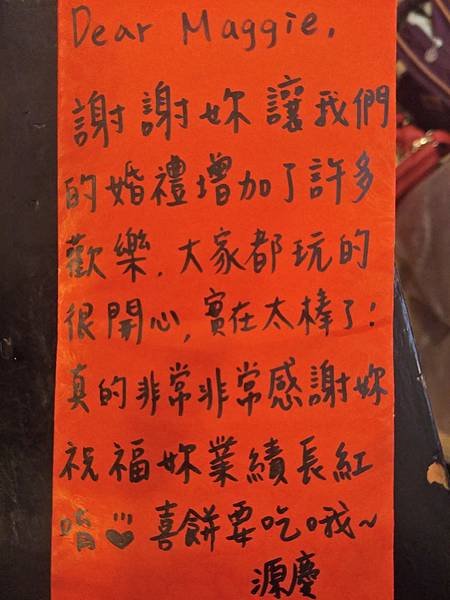 Dear Maggie,
謝謝妳讓我們
的婚禮增加了許多
歡樂.大家都玩的
很開心,實在太棒了!
真的非常非常感謝妳
祝福妳業績長紅
唷♡喜餅要吃哦~
源慶